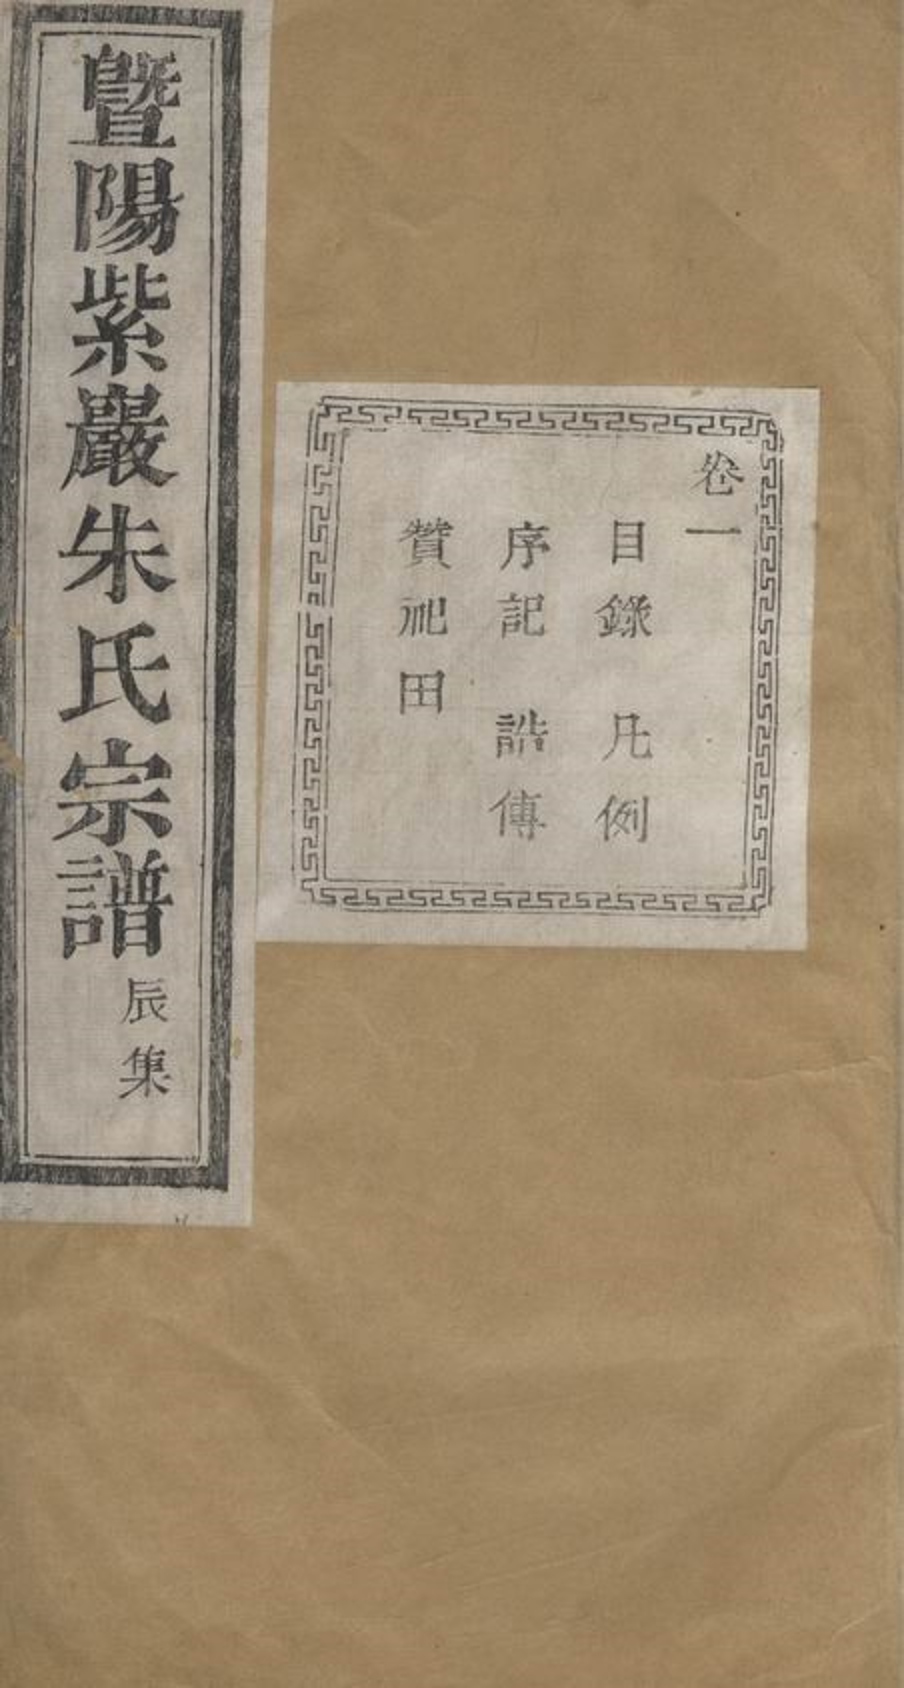 卷一
目錄　凡例
序記　誥傳
贊祀田
暨陽紫巖朱氏宗譜
辰集